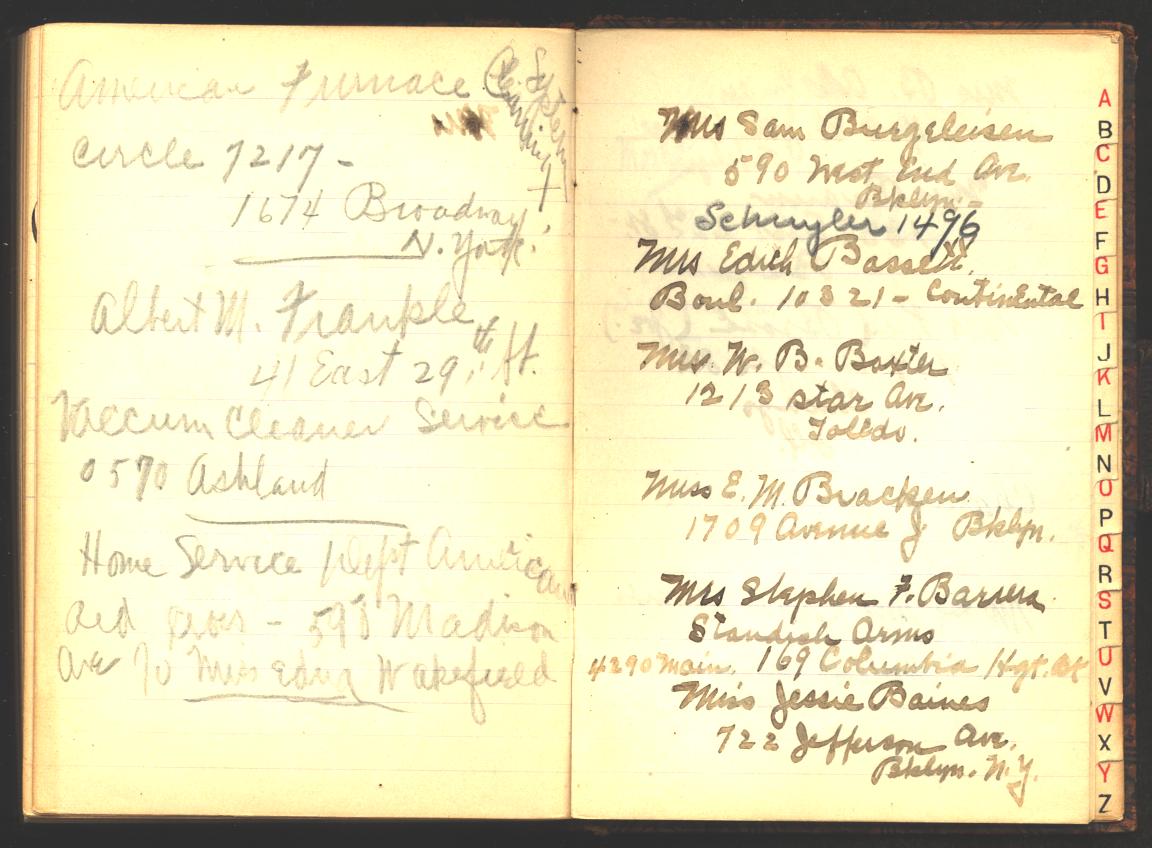 American Furnace Cleaning System
Circle 7217 -
1674 Broadway
N. York.
Albert M. Frankle
41 East 29th St.
Vaccum Cleaner Service
0570 Ashland
Home Service Dept American
Red - 598 Madison
Ave To Miss Edna Wakefield
Mrs Sam Burgeleisen
590 West End Ave.
Bklyn. -
Schuyler 1496
Mrs Edith Bassett.
Boul. 10321 - Continental
Mrs. W. B. Baxter
1213 Star Ave.
Toledo.
Miss E. M. Bracken
1709 Avenue J Bklyn.
Mrs Stephen F. Barrera
Standish Arms
4290 Main. 169 Columbia Hgt.
Miss Jessie Baines
722 Jefferson Ave.
Bklyn. N.Y.
A
B
C
D
E
F
G
H
I
J
K
L
M
N
O
P
Q
R
S
T
U
V
W
X
Y
Z